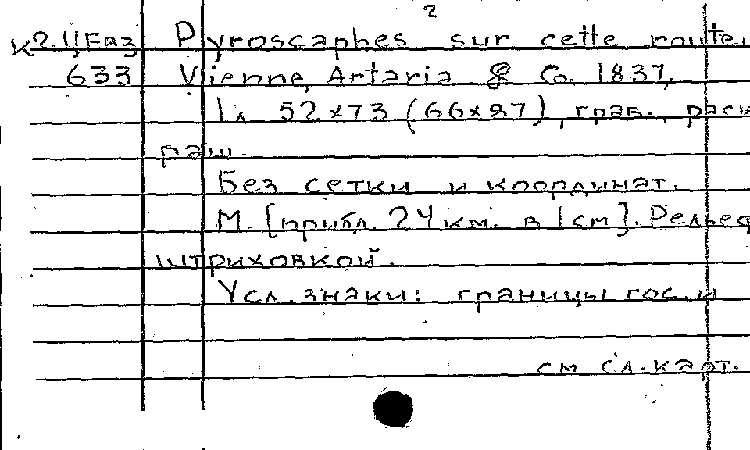 2
Pyroscaphes sur cette route.
633 Vienne, Artaria & Co. 1837.
1 л. 52x73 (66x87), грав., раск
раш.
Без сетки и координат.
М. [прибл. 24 км. в 1 см]. Рельеф
штриховкой.
Усл. знаки: границы гос. и
см сл. карт.